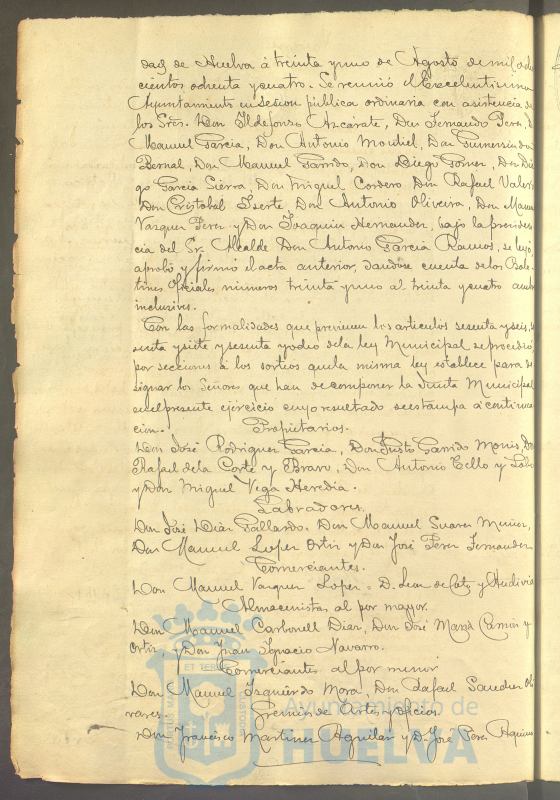 dad de Huelva á treinta y uno de Agosto de mil ocho
cientos ochenta y cuatro. Se reunió el Excelentisimo
Ayuntamiento en sesion pública ordinaria con asistencia de
los Sres. Don Ildefonso Azcárate, Don Fernando Perez, D.
Manuel Garcia, Don Antonio Montiel, Don Gumersindo
Bernal, Don Manuel Garrido, Don Diego Gomez, Don Die
go Garcia Sierra, Don Miguel Cordero Don Rafael Valero
Don Cristobal Iserte, Don Antonio Oliveira, Don Manuel
Vazquez Perez y Don Joaquin Hernandez, bajo la presiden
cia del Sr. Alcalde Don Antonio Garcia Ramos, se leyó,
aprobó y firmó el acta anterior, dandose cuenta de los Bole-
tines Oficiales numeros treinta y uno al treinta y cuatro ambos
inclusives.
Con las formalidades que previenen los articulos sesenta y seis, se
senta y siete y sesenta y ocho de la ley Municipal se procedió
por secciones á los sorteos que la misma ley establece para de
signar los Señores que han de componer la Junta Municipal
en el presente ejercicio cuyo resultado se estampa á continua
cion. Propietarios.
Don José Rodriguez Garcia, Don Justo Garrido Monis, Don
Rafael de la Corte y Bravo, Don Antonio Tello y Lobo
y Don Miguel Vega Heredia.
Labradores.
Don José Diaz Gallardo, Don Manuel Suarez Muñoz,
Don Manuel Lopez Ortiz y Don José Perez Fernandez
Comerciantes.
Don Manuel Vazquez Lopez = D.
Almacenistas al por mayor.
Don Manuel Carbonell Diaz, Don José Maria y
Ortiz, y Don Juan Ignacio Navarro.
Comerciantes al por menor
Don Manuel Izquierdo Mora, Don Rafael Sanchez Oli
vares. Gremios de Artes y oficios
Don Francisco Martinez Aguilar y D. José Perez
PORTUS MARIS
ET TERRÆ
CUSTODIA
Ayuntamiento de
HUELVA